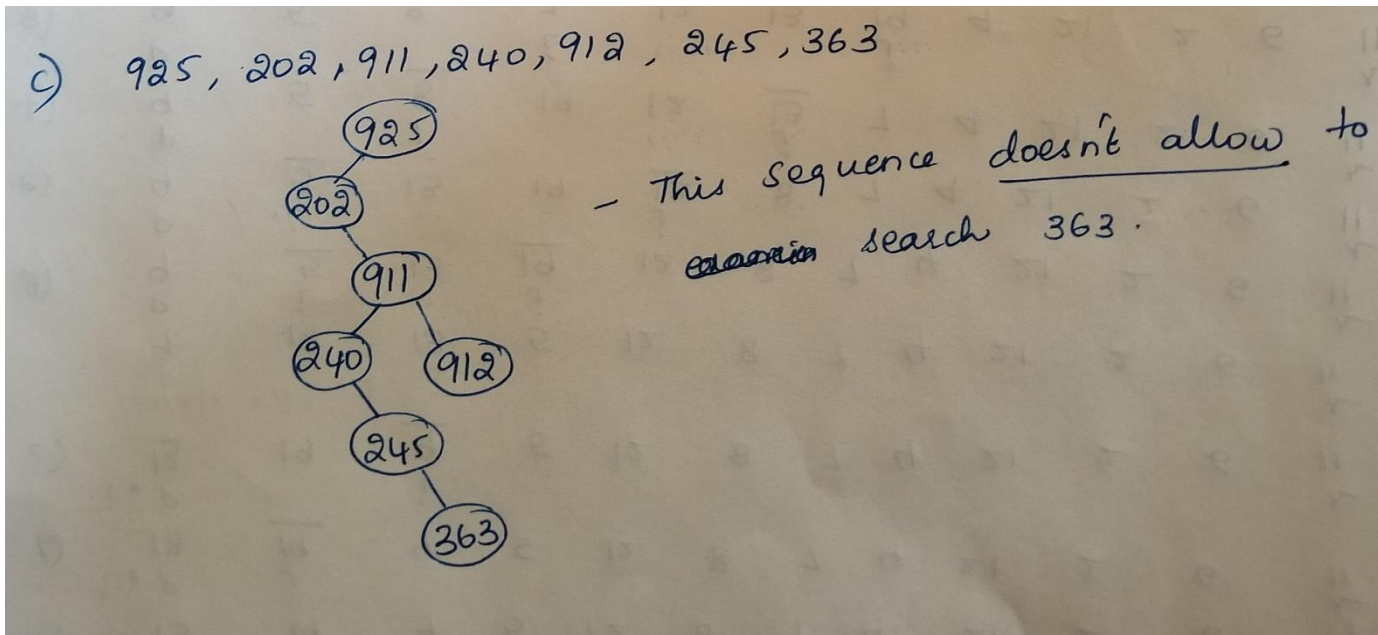 c) 925, 202, 911, 240, 912, 245, 363
925
202
911
240
912
245
363
- This sequence doesn't allow to
search 363.